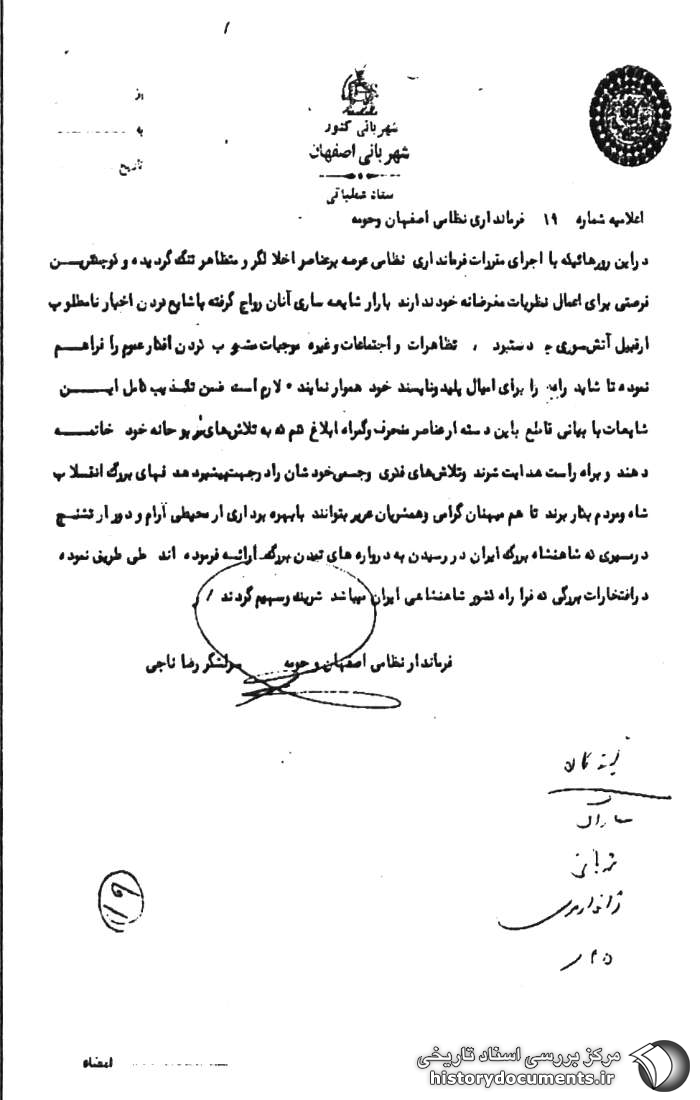 از
به
تاریخ
شهربانی کشور
شهربانی اصفهان
ستاد عملیاتی
اعلامیه شماره ۱۹ فرمانداری نظامی اصفهان وحومه
دراین روزهائیکه با اجرای مقررات فرمانداری نظامی عرصه برعناصر اخلا لگر و متظاهر تنگ گردیده و کوچکترین
فرصتی برای اعمال نظریات مغرضانه خودندارند بازار شایعه سازی آنان رواج گرفته باشایع کردن اخبار نامطلوب
ازقبیل آتش سوزی دستبرد ، تظاهرات و اجتماعات وغیره موجبات مشوب کردن افکارعموم را فراهم
نموده تا شاید راهی را برای امیال پلیدوناپسند خود هموار نمایند ٠ لازم است ضمن تکذیب کامل این
شایعات با بیانی قاطع باین دسته ازعناصر منحرف وگمراه ابلاغ کنم که به تلاش‌های مذبوحانه خود خاتمه
دهند و براه راست هدایت شوند وتلاش‌های فکری وجسمی خودشان رادرجهت پیشبرد هدفهای بزرگ انقلاب
شاه ومردم بکار برند تا هم میهنان گرامی وهمشهریان عزیز بتوانند بابهره برداری از محیطی آرام و دور از تشنج
درمسیری که شاهنشاه بزرگ ایران در رسیدن به دروازه های تمدن بزرگ ارائه فرموده اند طی طریق نموده
درافتخارات بزرگی که فرا راه کشور شاهنشاهی ایران میباشد شریک وسهیم گردند /
فرماندار نظامی اصفهان و حومه سرلشگر رضا ناجی
گیرندگان
ساواک
شهربانی
ژاندارمری
۱۱۹
امضاء
مرکز بررسی اسناد تاریخی
historydocuments.ir